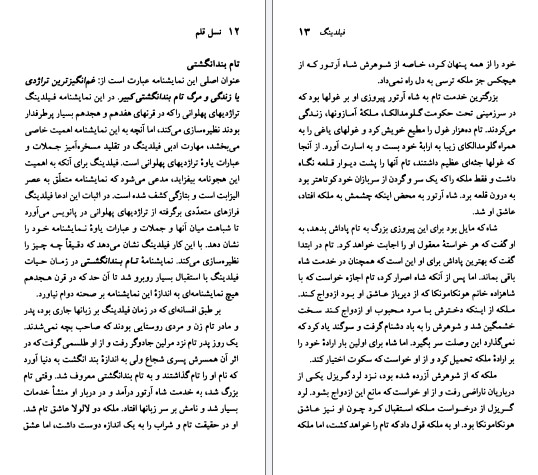 ۱۲ نسل قلم
تام بندانگشتی
عنوان اصلی این نمایشنامه عبارت است از: غم‌انگیزترین تراژدی
یا زندگی و مرگ تام بندانگشتی کبیر. در این نمایشنامه فیلدینگ
تراژدیهای پهلوانی را که در قرنهای هفدهم و هجدهم بسیار پرطرفدار
بودند نظیره‌سازی می‌کند، اما آنچه به این نمایشنامه اهمیت خاصی
می‌بخشد، مهارت ادبی فیلدینگ در تقلید مسخره‌آمیز جملات و
عبارات یاوۀ تراژدیهای پهلوانی است. فیلدینگ برای آنکه به اهمیت
این هجونامه بیفزاید، مدعی می‌شود که نمایشنامه متعلّق به عصر
الیزابت است و بتازگی کشف شده است. در اثبات این ادعا فیلدینگ
فرازهای متعدّدی برگرفته از تراژدیهای پهلوانی در پانویس می‌آورد
تا شباهت میان آنها و جملات و عبارات یاوۀ نمایشنامه خود را
نشان دهد. با این کار فیلدینگ نشان می‌دهد که دقیقاً چه چیز را
نظیره‌سازی می‌کند. نمایشنامۀ تام بندانگشتی در زمان حیات
فیلدینگ با استقبال بسیار روبرو شد تا آن حد که در قرن هجدهم
هیچ نمایشنامه‌ای به اندازۀ این نمایشنامه بر صحنه دوام نیاورد.
بر طبق افسانه‌ای که در زمان فیلدینگ بر زبانها جاری بود، پدر
و مادر تام زن و مردی روستایی بودند که صاحب بچه نمی‌شدند.
یک روز پدر تام نزد مرلین جادوگر رفت و از او طلسمی گرفت که در
اثر آن همسرش پسری شجاع ولی به اندازۀ بند انگشت به دنیا آورد
که نام او را تام گذاشتند و به تام بندانگشتی معروف شد. وقتی تام
بزرگ شد، به خدمت شاه آرتور درآمد و در دربار او منشأ خدمات
بسیار شد و نامش بر سر زبانها افتاد. ملکه دو لالولا عاشق تام شد.
او در حقیقت تام و شراب را به یک اندازه دوست داشت، اما عشق
فیلدینگ ۱۳
خود را از همه پنهان کرد، خاصه از شوهرش شاه آرتور که از
هیچکس جز ملکه ترسی به دل راه نمی‌داد.
بزرگترین خدمت تام به شاه آرتور پیروزی او بر غولها بود که
در سرزمینی تحت حکومت گلومدالکا، ملکۀ آمازونها، زندگی
می‌کردند. تام ده‌هزار غول را مطیع خویش کرد و غولهای یاغی را به
همراه گلومدالکای زیبا به ارابۀ خود بست و به اسارت آورد. از آنجا
که غولها جثه‌ای عظیم داشتند، تام آنها را پشت دیوار قلعه نگاه
داشت و فقط ملکه را که یک سر و گردن از سربازان خود کوتاهتر بود
به درون قلعه برد. شاه آرتور به محض اینکه چشمش به ملکه افتاد،
عاشق او شد.
شاه که مایل بود برای این پیروزی بزرگ به تام پاداش بدهد، به
او گفت که هر خواستۀ معقول او را اجابت خواهد کرد. تام در ابتدا
گفت که بهترین پاداش برای او این است که همچنان در خدمت شاه
باقی بماند. اما پس از آنکه شاه اصرار کرد، تام اجازه خواست که با
شاهزاده خانم هونکامونکا که از دیرباز عاشق او بود ازدواج کند.
ملکه از اینکه دخترش با مرد محبوب او ازدواج کند سخت
خشمگین شد و شوهرش را به باد دشنام گرفت و سوگند یاد کرد که
نمی‌گذارد این وصلت سر بگیرد. اما شاه برای اولین بار ارادۀ خود را
بر ارادۀ ملکه تحمیل کرد و از او خواست که سکوت اختیار کند.
ملکه که از شوهرش آزرده شده بود، نزد لرد گریزل یکی از
درباریان ناراضی رفت و از او خواست که مانع این ازدواج بشود. لرد
گریزل از درخواست ملکه استقبال کرد چون او نیز عاشق
هونکامونکا بود. او به ملکه قول داد که تام را خواهد کشت، اما ملکه